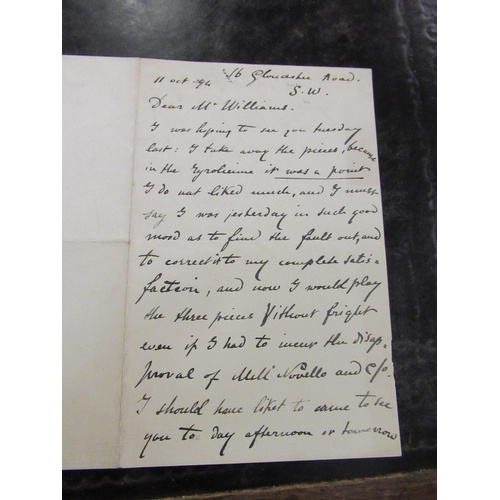 11 oct 94 16 Gloucester Road.
S.W.
Dear Mr Williams.
I was hoping to see you tuesday
last: I take away the pieces, because
in the Tyrolienne it was a point
I do not liked much, and I must
say I was yesterday in such good
mood as to find the fault out, and
to correct it to my complete satis=
faction, and now I would play
the three pieces Without fright
even if I had to incur the disap-
proval of Mell Novello and C/o.
I should have liket to came to see
you to day afternoon or tomorrow